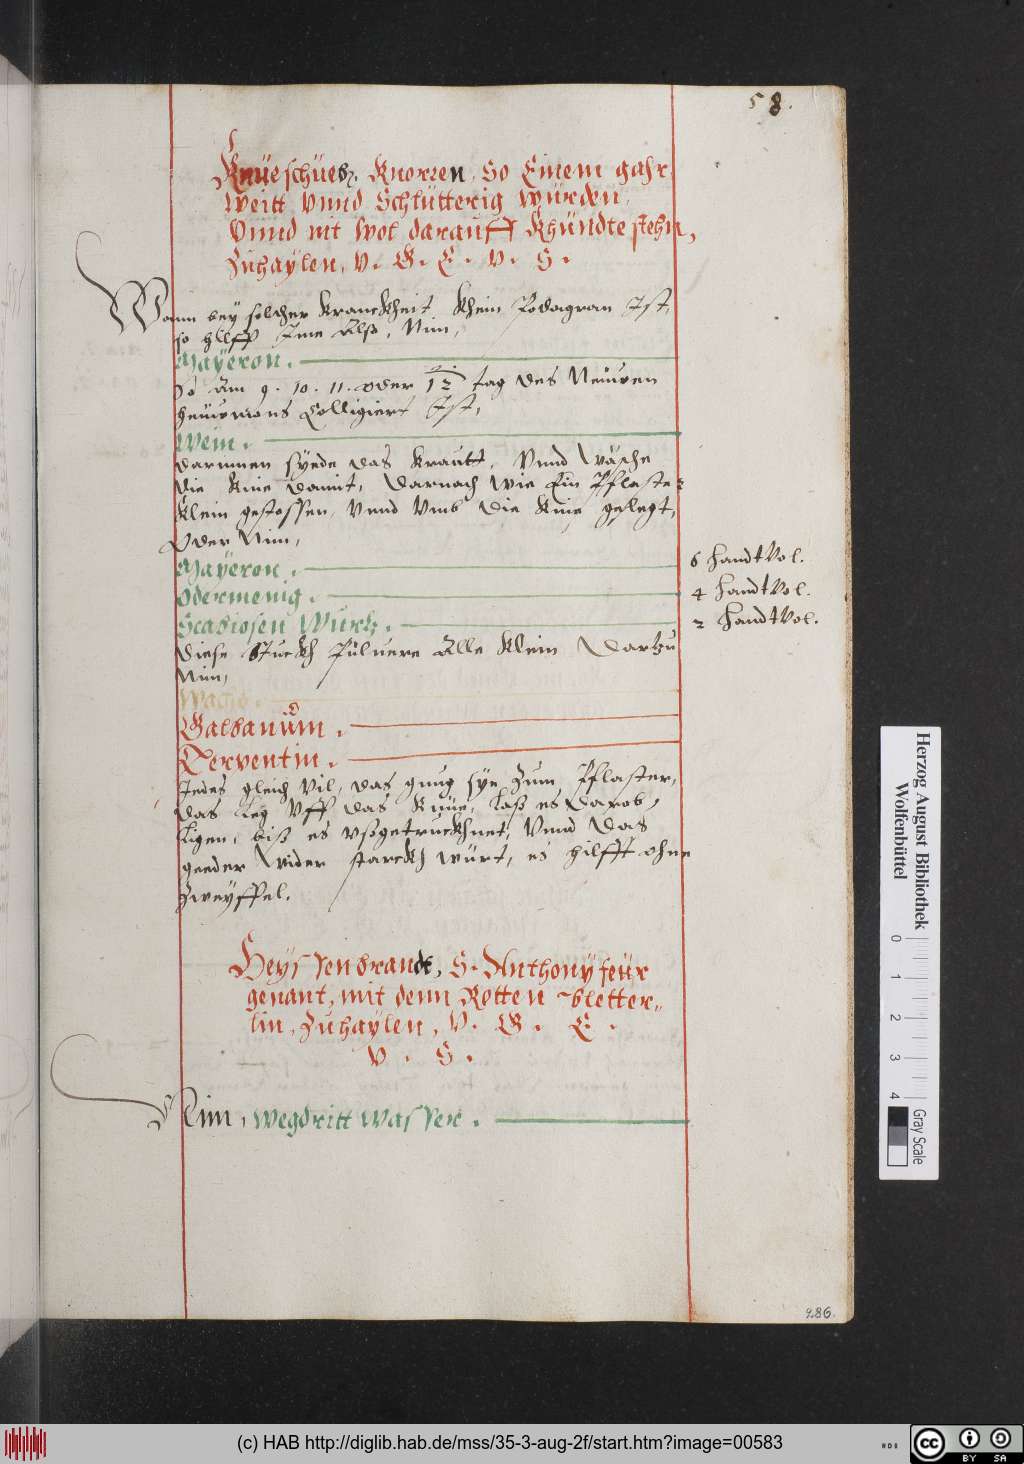 58.
Knüeschüebꝫ, Knorren, So Einem gahr
weitt, Vnnd Schlütterig würden,
Vnnd nit wol darauff Khündte stehn,
Zuhaylen, V. G. E. V. S.
Wann bey solcher Kranckheit Khein Podagran Ist,
so hilff Ime Alß, Nim,
Mayeron.
So Am 9. 10. 11. oder 12 tag des Neuwen
heüwmons Colligiert Ist,
Wein.
darinnen syede das Krautt, Vnnd Wäsche
die Knie damit, Darnach wie Ein Pflaster
Klein gestossen, Vnnd Vmb die Knie gelegt,
Oder Nim,
Mayeron. 6 Handt Vol.
Odermenig. 4 Handt Vol.
Scabiosen Wurtz. 2 Handt Vol.
Diese Stuckh Puluere Alle Klein Dartzu
Nim,
Galbanüm.
Terpentin.
Jedes gleich Vil, das gnug sye Zum Pflaster,
das Leg Vff das Knüe, laß es Darob
ligen, biß es vßgetrückhnet, Vnnd Das
geeder Wider starckh würt, es hilfft ohne
Zweyffel.
Heyssenbrandt, S. Anthony feür
genant, mit denn Rotten bletter„
lin, Zuhaylen, V. G. E.
V. S.
Nim, Wegdritt Wasser.
286.
Herzog August Bibliothek
Wolfenbüttel
0 1 2 3 4
Gray Scale
(c) HAB http://diglib.hab.de/mss/35-3-aug-2f/start.htm?image=00583
cc BY SA